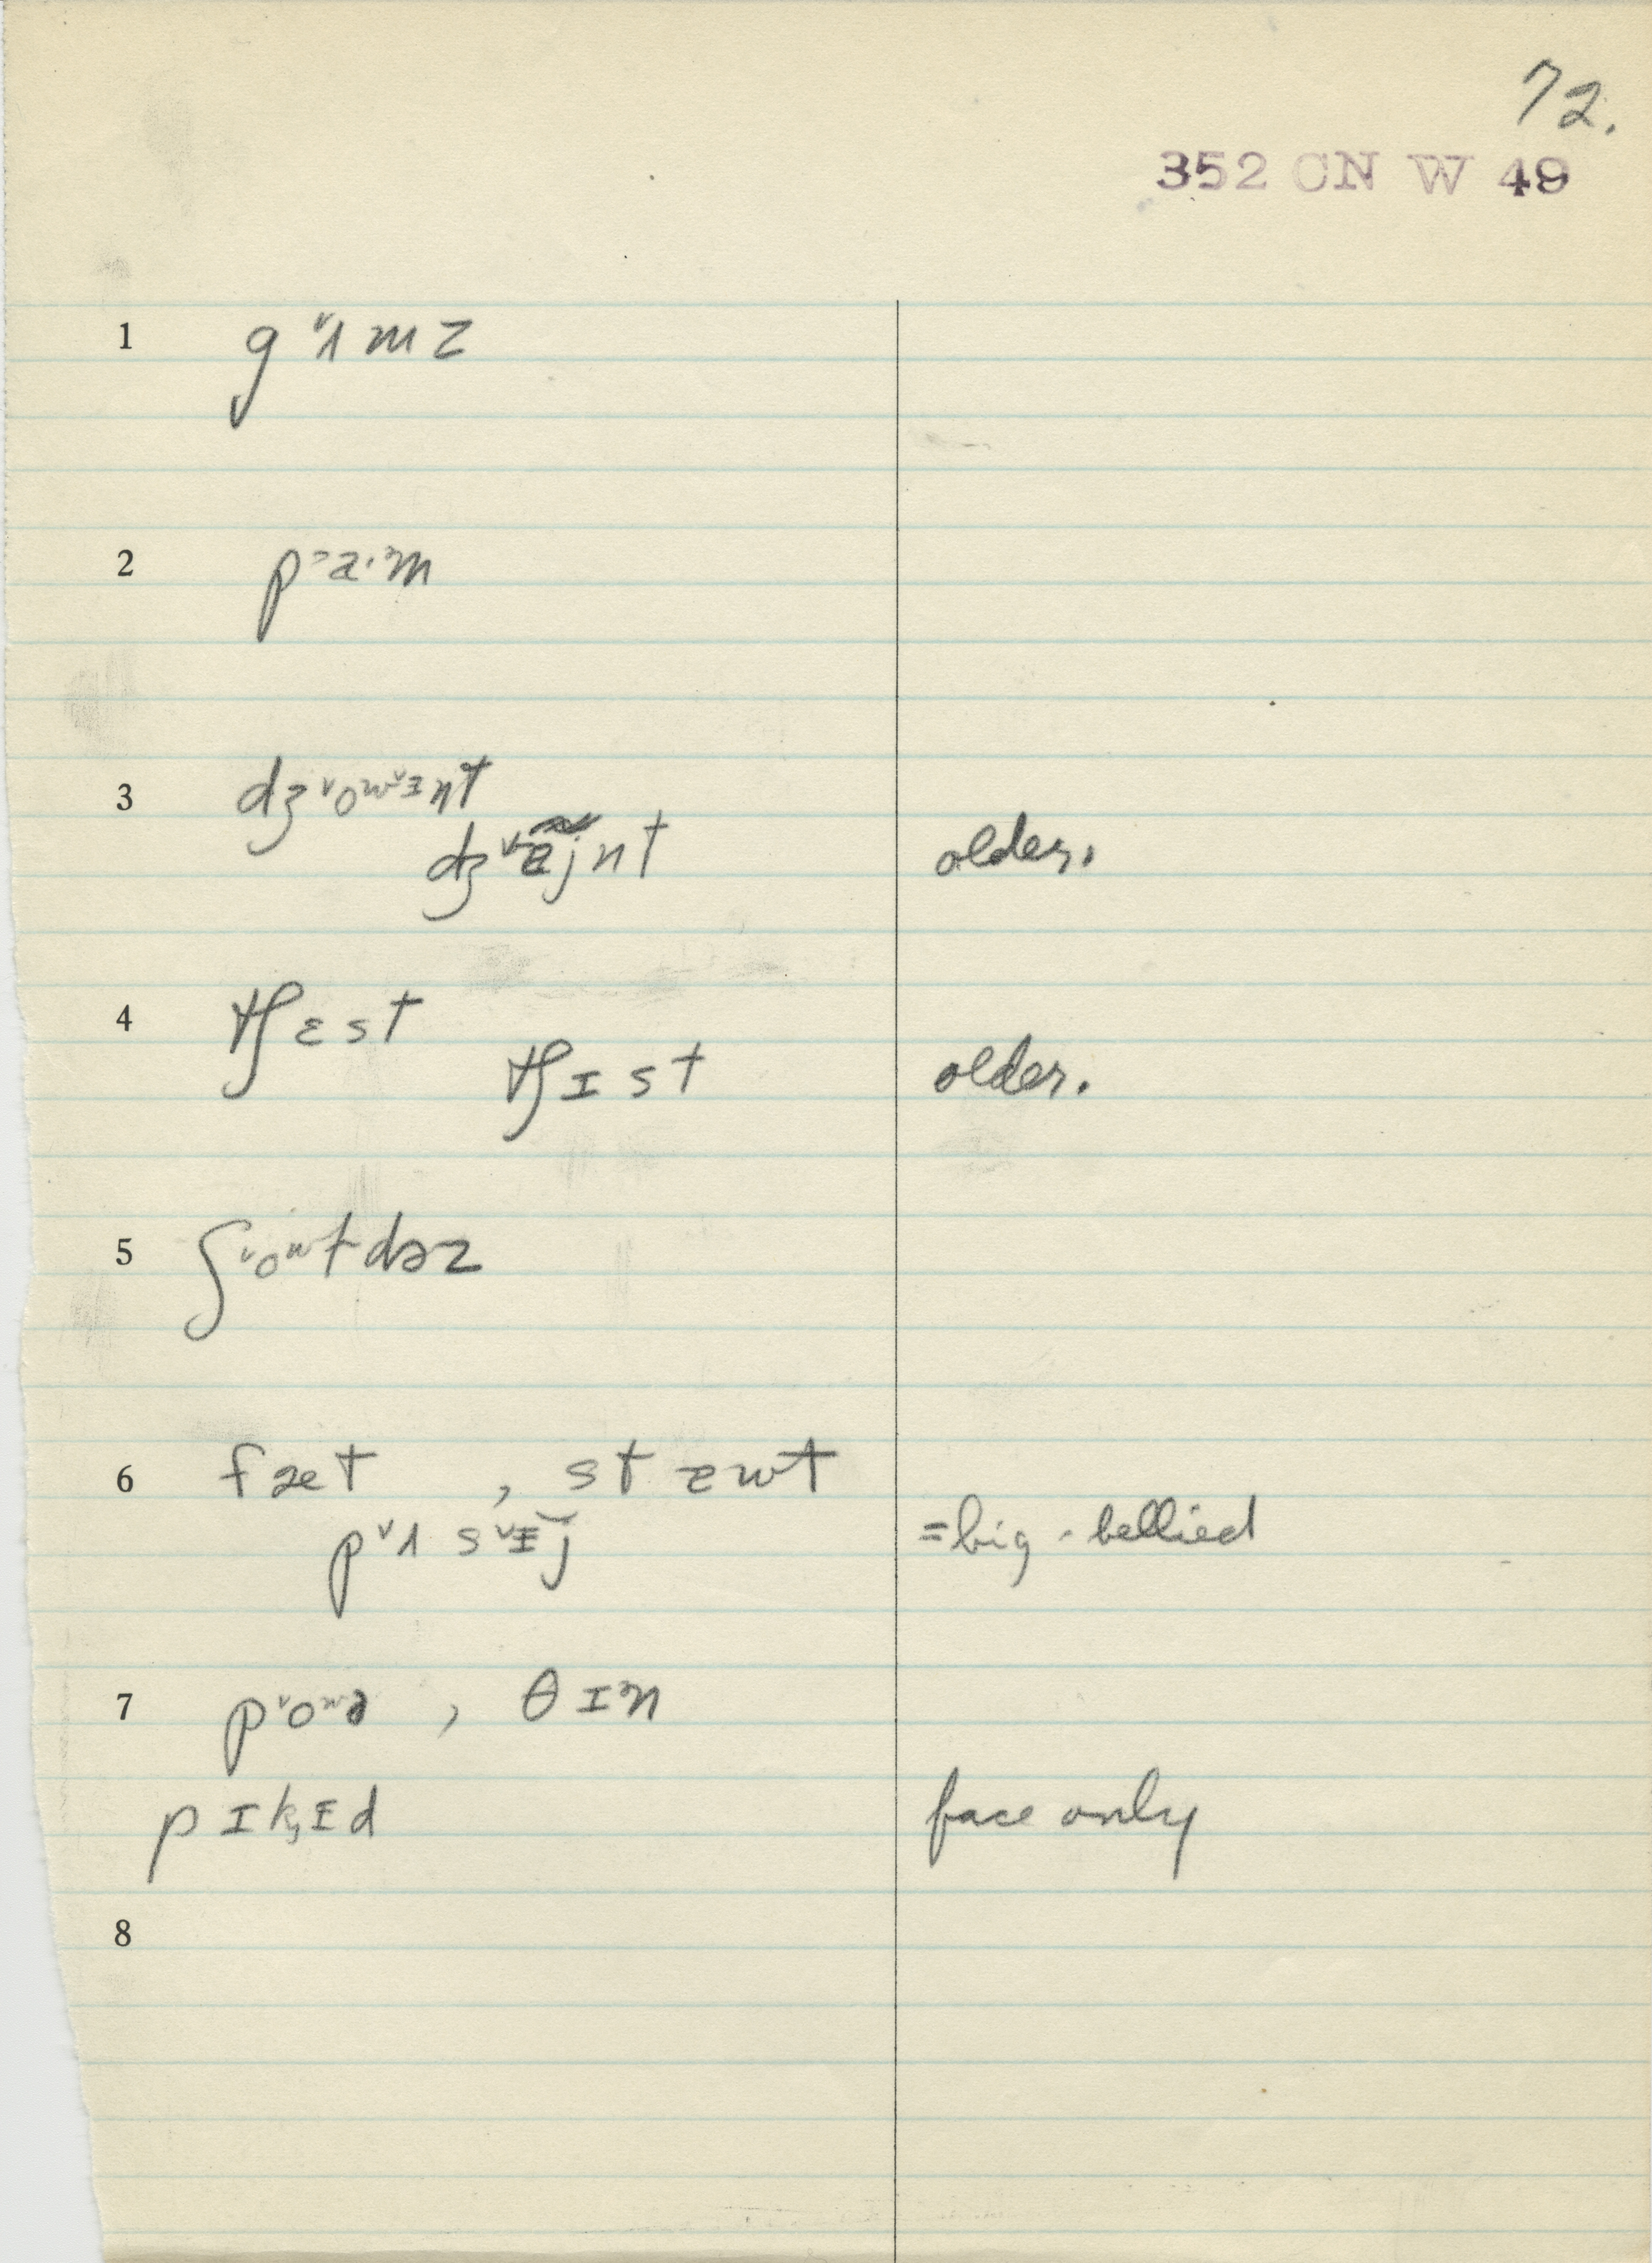 72.
352 CN W 49
1 g˅ʌmz
2 p˃a·m
3 dʒ˅oʷ˅ɪnt
dʒ˅ɐ̃jnt older.
4 tʃɛst
tʃɪst older.
5 ʃ˅oʷtdəz
6 fæt , stɐwt
p˅ʌs˅ɪ̵j =big-bellied
7 p˅oʷə , θɪn
pɪk̡ɪ̵d face only
8